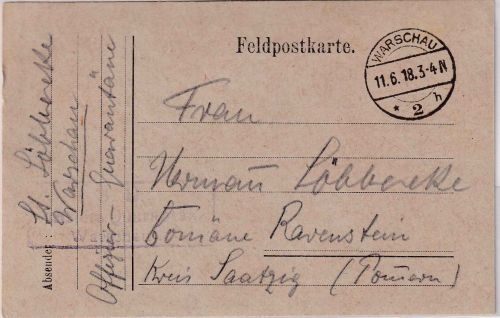 Feldpostkarte.
WARSCHAU
11.6.18.3-4N
* 2 h
Absender:
Lt. Löbbecke
Warschau
Offizier-Quarantäne
Frau
Herman Löbbecke
Domäne Ravenstein
Kreis Saatzig (Pomern)